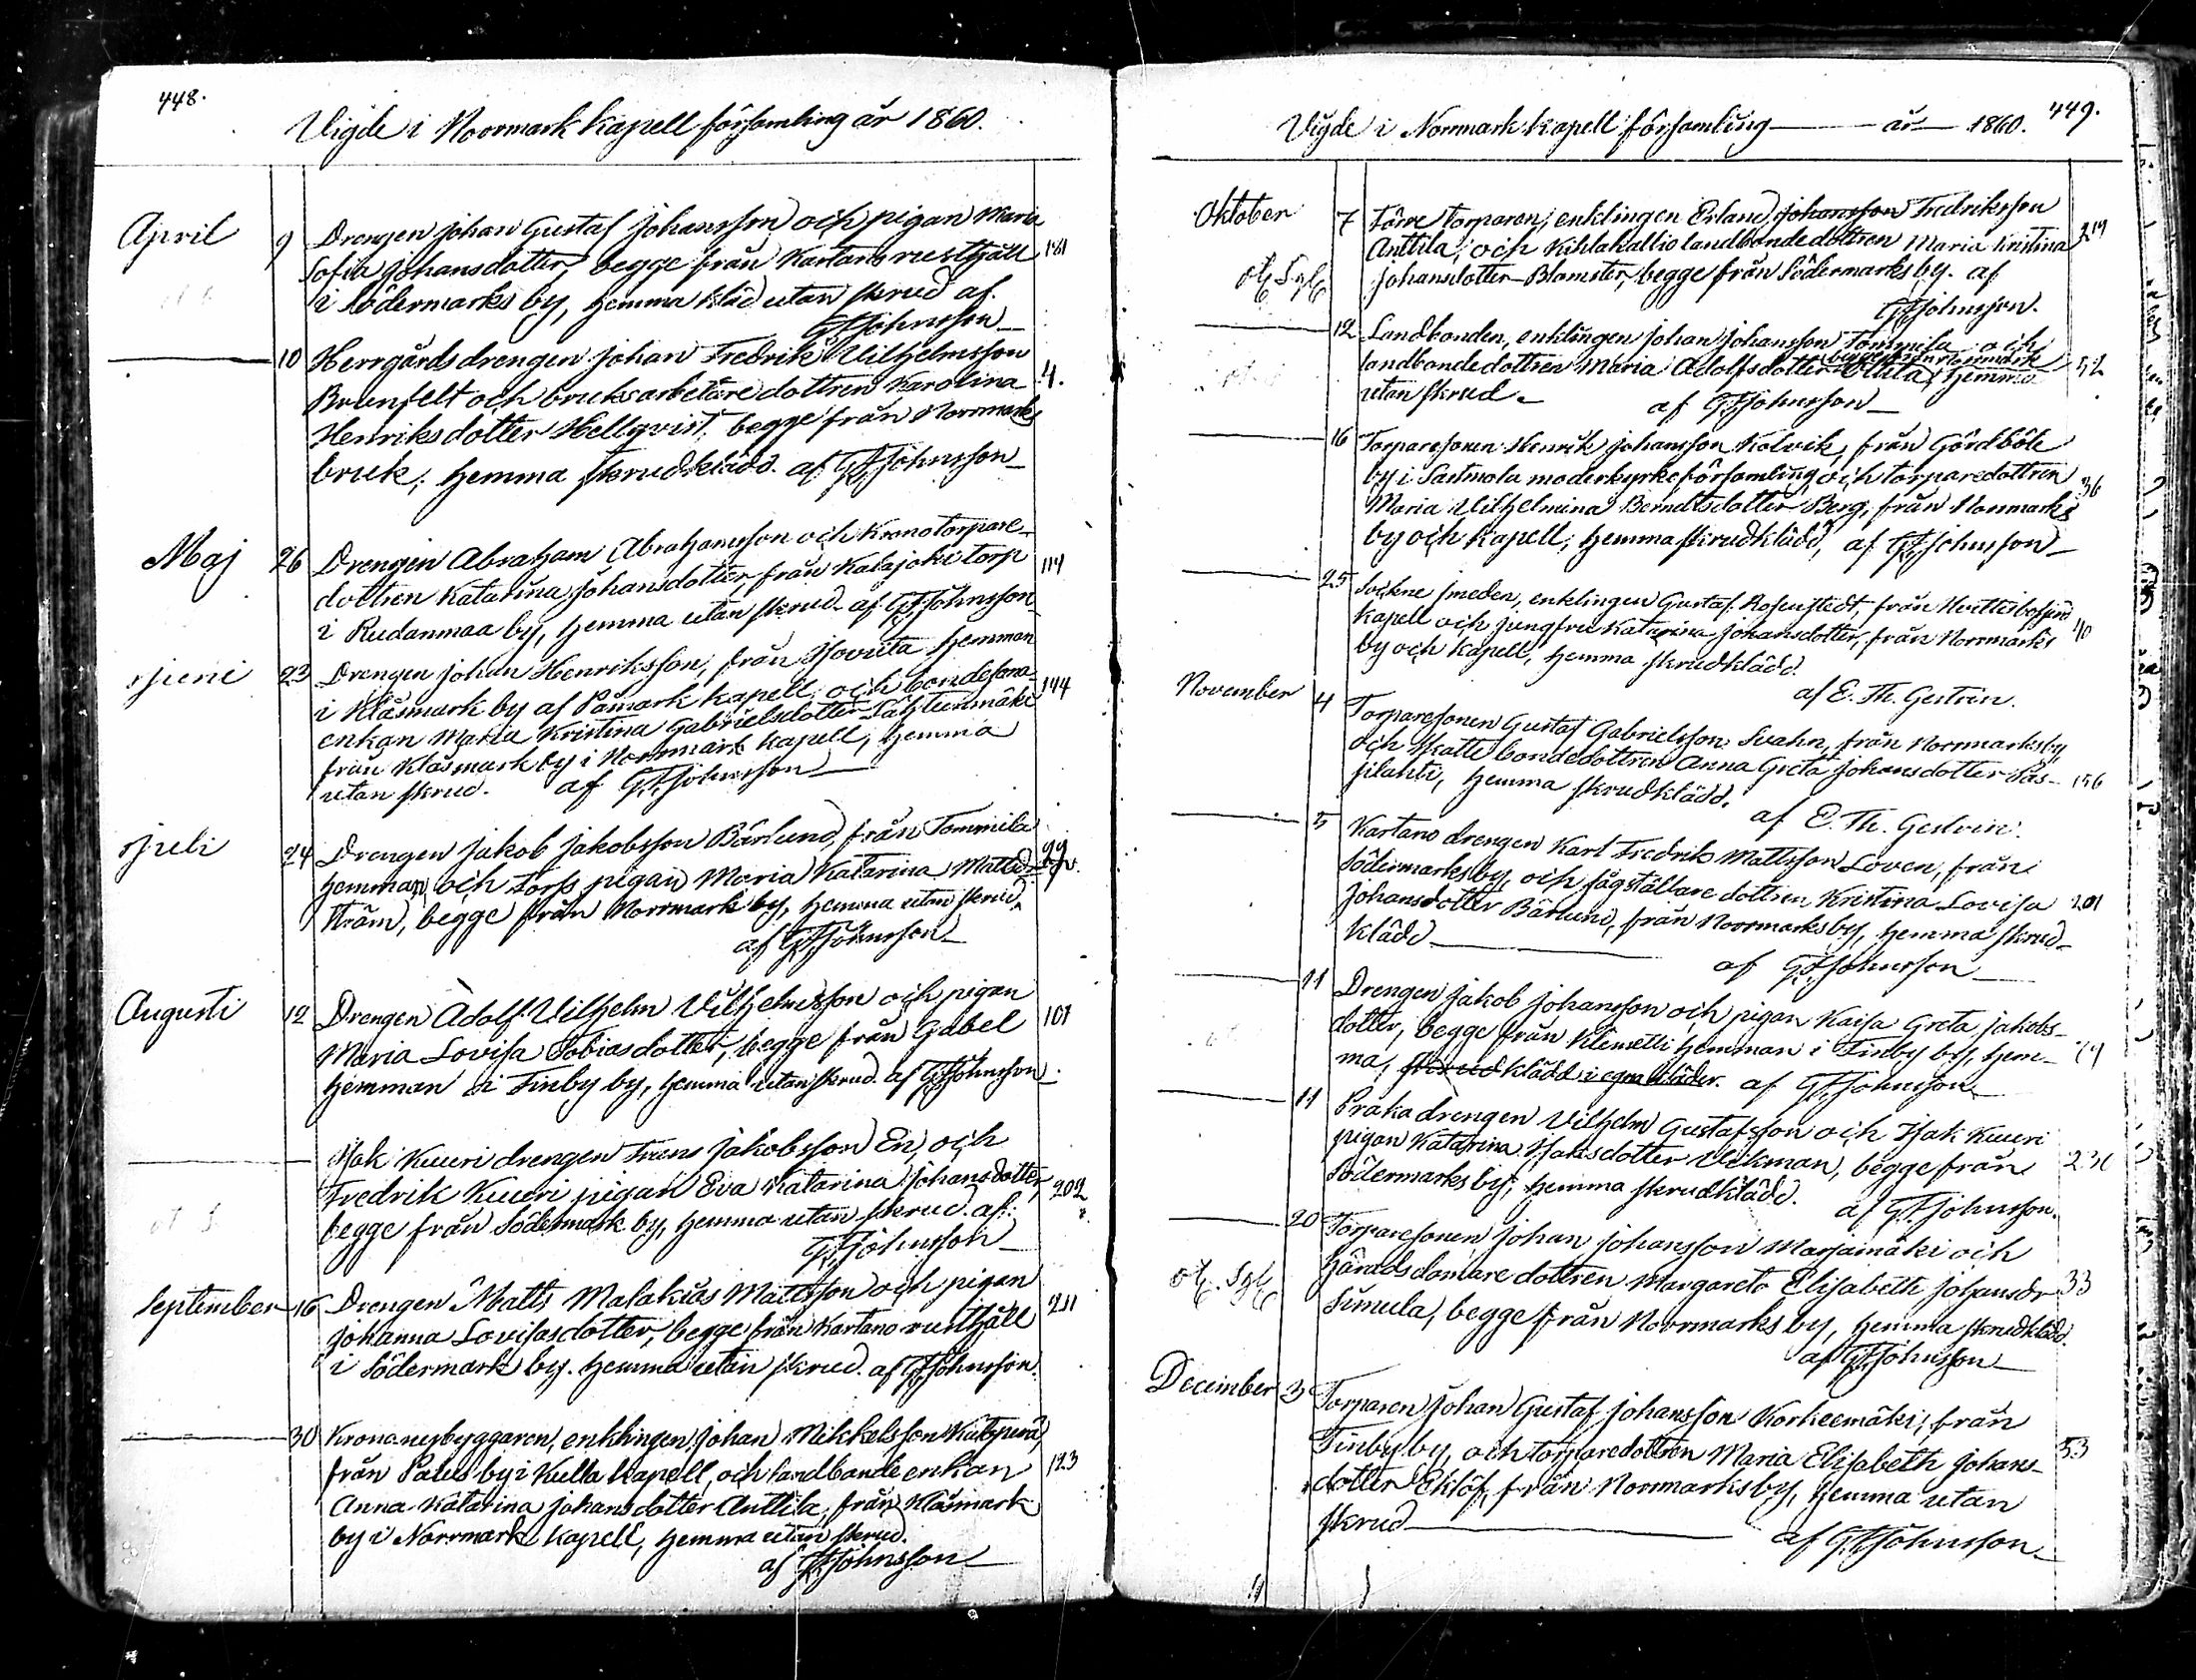 448.
Vigde i Norrmark Kapell församling år 1860.
April 9 Drengen Johan Gustaf Johansson och pigan Maria
Sofia Johansdotter, begge från Kartano rusthåll 181
i Södermarks by, hemma kläd utan skrud af
G.F. Johnsson
10 Herrgårds drengen Johan Fredrik Vilhelmsson
Brunfelt och bruksarbetare dottren Karolina 4.
Henriksdotter Hellqvist, begge från Norrmarks
bruk, hemma skrudklädd. af G.F. Johnsson
Maj 26 Drengen Abraham Abrahamsson och Kronotorpare-
dottren Katarina Johansdotter, från Kalajoki torp 114
i Rudanmaa by, hemma utan skrud. af G.F. Johnsson
Juni 23 Drengen Johan Henriksson, från Isoviita hemman
i Klåsmark by af Påmark kapell, och bondesons- 144
enkan Maria Kristina Gabrielsdotter Lähteenmäki
från Klåsmark by i Norrmark kapell, hemma
utan skrud. af G.F. Johnsson
Juli 24 Drengen Jakob Jakobsson Bärlund, från Tommila
hemman, och torps pigan Maria Katarina Mattsd:r 99.
Ström, begge från Norrmark by, hemma utan skrud.
af G.F. Johnsson
Augusti 12 Drengen Adolf Vilhelm Vilhelmsson och pigan
Maria Lovisa Tobiasdotter, begge från Gabel 101
hemman i Finby by, hemma utan skrud. af G.F. Johnsson
Isak Kuuri drengen Frans Jakobsson En, och
Fredrik Kuuri pigan Eva Katarina Johansdotter, 202
begge från Södermark by, hemma utan skrud. af
G.F. Johnsson
September 16 Drengen Matts Malakias Mattsson och pigan
Johanna Lovisasdotter, begge från Kartano rusthåll 211
i Södermark by. hemma utan skrud. af G.F. Johnsson
30 Kronanybyggaren, enklingen Johan Mikkelsson
från Palus by i Kulla kapell, och landbonde enkan 123
Anna Katarina Johansdotter Anttila, från Klåsmark
by i Norrmark kapell, hemma utan skrud.
af G.F. Johnsson
449.
Vigde i Norrmark kapell församling år 1860.
Oktober 7 Förre torparen, enklingen Erland Johansson Fredriksson
Anttila, och Kihlakallio landbondedottren Maria Kristina 219
Johansdotter Blomster, begge från Södermarks by. af
G.F. Johnsson.
12 Landbonden, enklingen Johan Johansson Tommila och
begge från Norrmark
landbondedottren Maria Adolfsdotter Ollila, hemma 52
utan skrud. af G.F. Johnsson
16 Torparesonen Henrik Johansson Kolvik, från Gårdböle
by i Sastmola moderkyrkoförsamling och torparedottren 36
Maria Vilhelmina Berndtsdotter Berg, från Norrmarks
by och kapell, hemma skrudklädd, af G.F. Johnsson
25 Sockne smeden, enklingen Gustaf Rosenstedt, från Hvittisbofjärd
kapell och jungfru Katarina Johansdotter, från Norrmarks 40
by och kapell, hemma skrudklädd.
af E. Th. Gestrin.
November 4 Torparesonen Gustaf Gabrielsson Svahn, från Norrmarks by
och skattebondedottren Anna Greta Johansdotter Pas- 156
silahti, hemma skrudklädd.
af E. Th. Gestrin.
5 Kartano drengen Karl Fredrik Mattsson Loven, från
Södermarks by, och sågställare dottren Kristina Lovisa 201
Johansdotter Bärlund, från Norrmarks by, hemma skrud-
klädd af G.F. Johnsson
11 Drengen Jakob Johansson och pigan Kaisa Greta Jakobs-
dotter, begge från Klemetti hemman i Finby by, hem- 79
ma, skrudklädd i egna kläder. af G.F. Johnsson
11 Praka drengen Vilhelm Gustafsson och Isak Kuuri
pigan Katarina Isaksdotter Vikman, begge från
Södermarks by, hemma skrudklädd. af G.F. Johnsson.
20 Torparesonen Johan Johansson Marjamäki och
häradsdomare dottren Margareta Elisabeth Johansdr 33
Simula, begge från Norrmarks by, hemma skrudklädd.
af G.F. Johnsson
December 3 Torparen Johan Gustaf Johansson Korkeemäki, från
Finby by, och torparedottren Maria Elisabeth Johans- 53
dotter Eklöf, från Norrmarks by, hemma utan
skrud af G.F. Johnsson